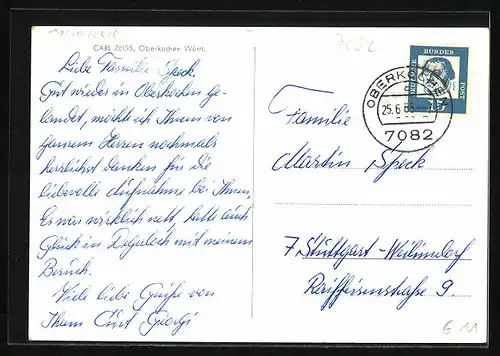 CARL ZEISS, Oberkochen Württ.
Liebe Familie Speck,
Gut wieder in Oberkochen ge-
landet, möcht ich Ihnen von
ganzem Herzen nochmals
herzlichst danken für die
liebevolle Aufnahme bei Ihnen.
Es war wirklich nett, hatte auch
Glück in Degerloch mit meinem
Besuch.
Viele liebe Grüße von
Ihrem Curt Giorgi
DEUTSCHE BUNDESPOST
15
OBERKOCHEN
25.6.63
7082
Familie
Martin Speck
7 Stuttgart-Weilimdorf
Raiffeisenstraße 9.
G 11